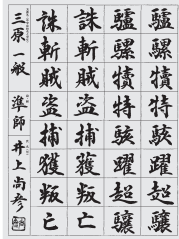 驢騾犢特駭躍超驤
驢騾犢特駭躍超驤
誅斬賊盗捕獲叛亡
誅斬賊盗捕獲叛亡
三原一敏 準師 井上尚彦